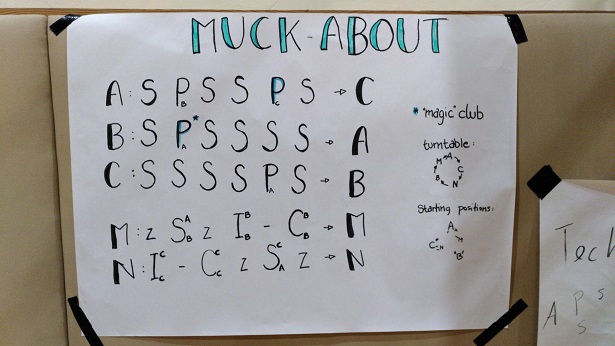 MUCK-ABOUT
A: S P_B S S P_C S → C
B: S P_A* S S S S → A
C: S S S S P_A S → B
M: z S^A_B z I^B_B - C^B_B → M
N: I^C_C - C^C_C z S^C_A z → N
* "magic" club
turntable:
M → A
B C
N
Starting positions:
A
M
C N
"B"
Tech
A P S
S